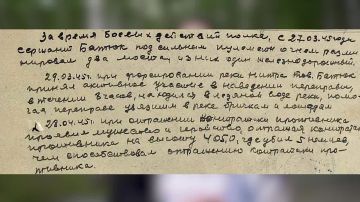 За время боевых действий полка, с 27.03.45 года
сержант Батюк под сильным пулеметн огнем разми
нировал два моста из них один железнодорожный.
29.03.45г при форсировании реки Нитра тов. Батюк
принял активное участие в наведении переправы
в течении 8 часов находился в ледяной воде реки, помо
гая переправе увязшим в реке бричкам и лошадям
28.04.45г при отражении контратаки противника
проявил мужество и геройство, отражая контратаку
противника на высоту 405,0, где убил 5 немцев,
чем способствовал отражению контратаки про-
тивника.